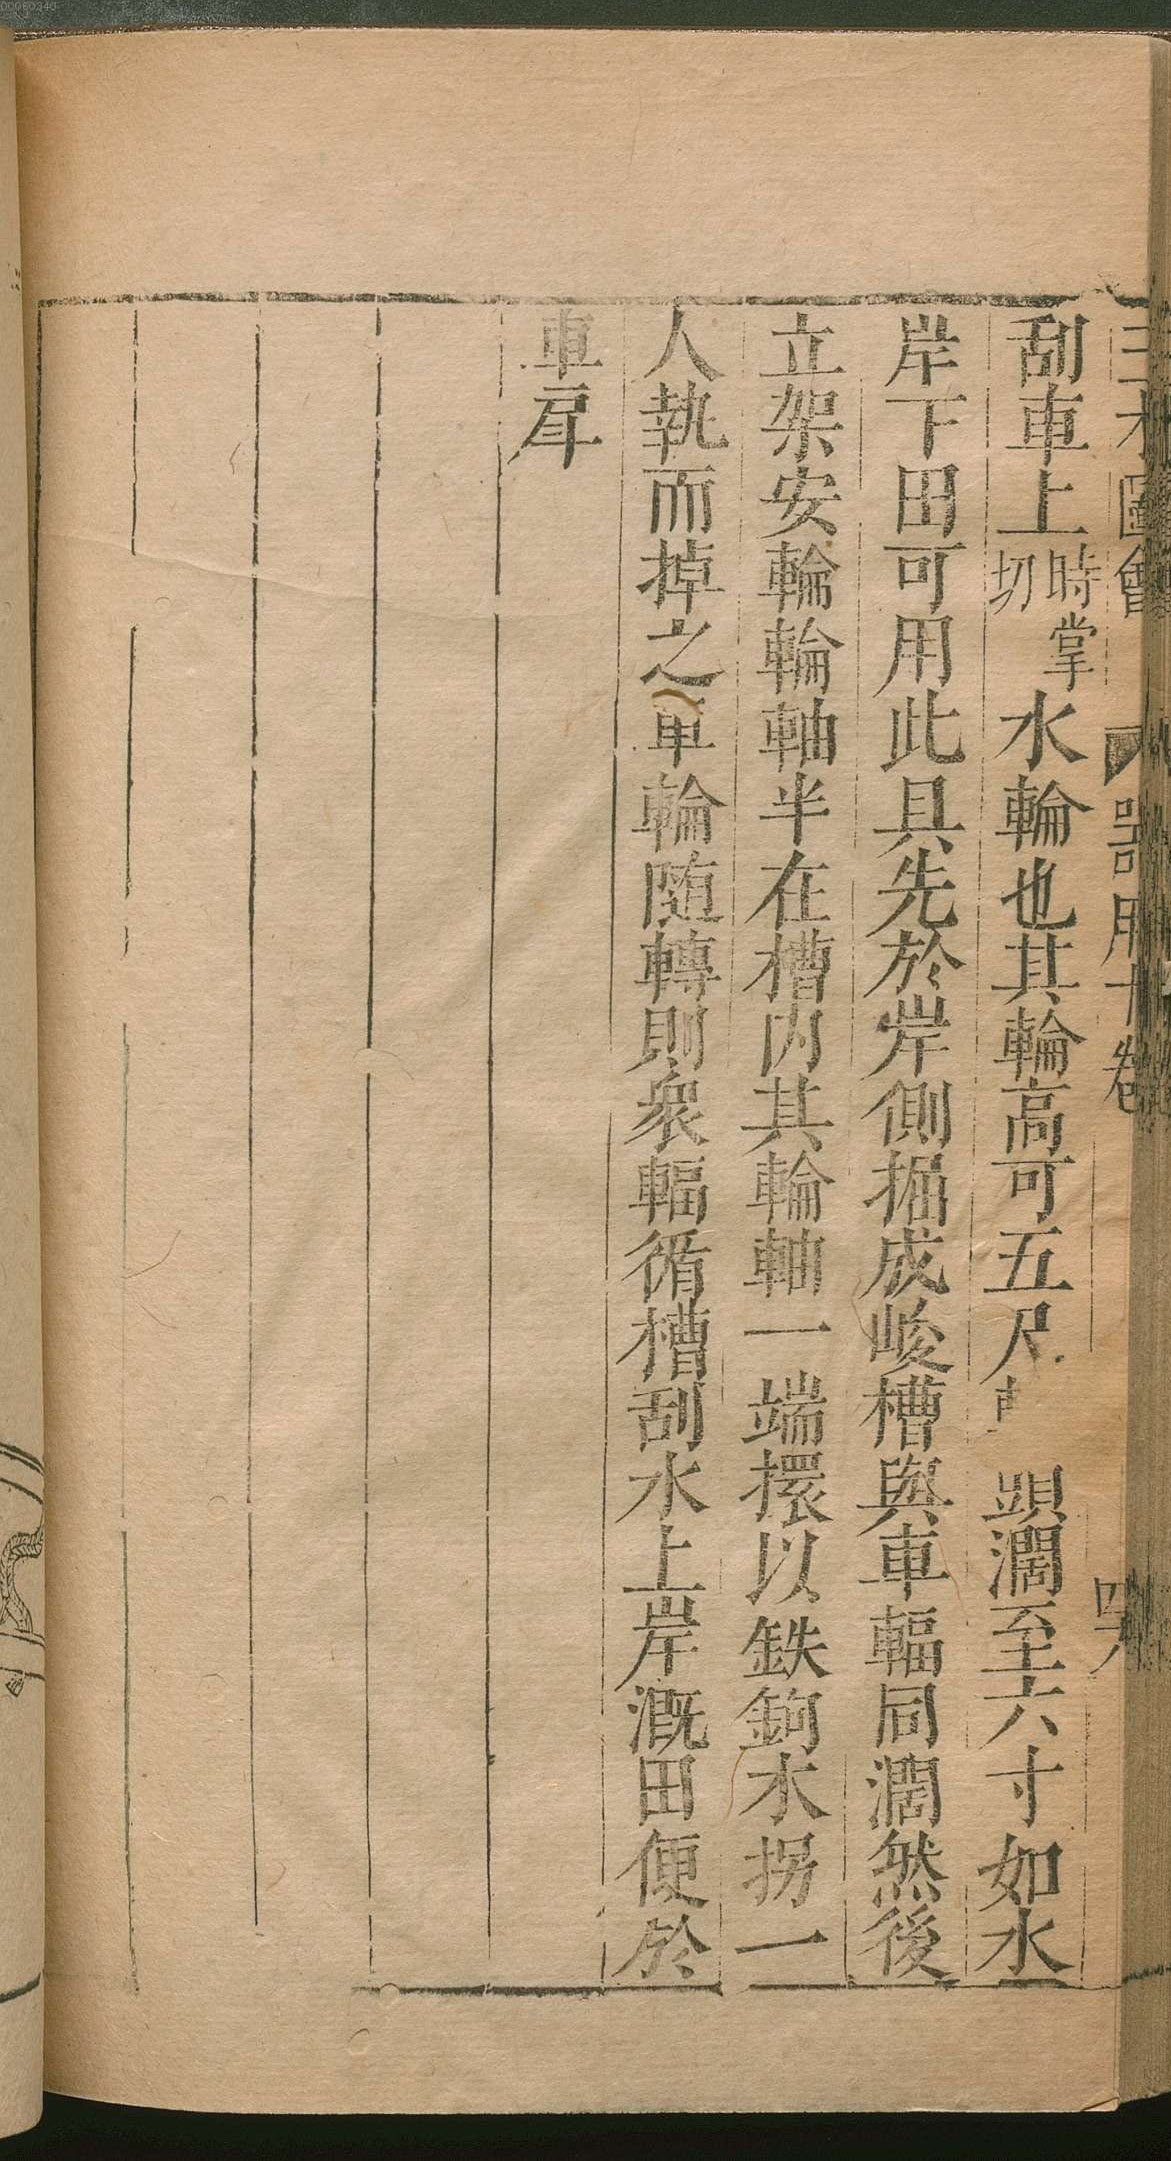 三才圖會 器用十卷
刮車上時掌切水輪也其輪高可五尺頭濶至六寸如水
岸下田可用此具先於岸側掘成峻槽與車輻同濶然後
立架安輪輪軸半在槽内其輪軸一端擐以鉄鉤木拐一
人執而掉之車輪随轉則衆輻循槽刮水上岸溉田便於
車戽
00060340